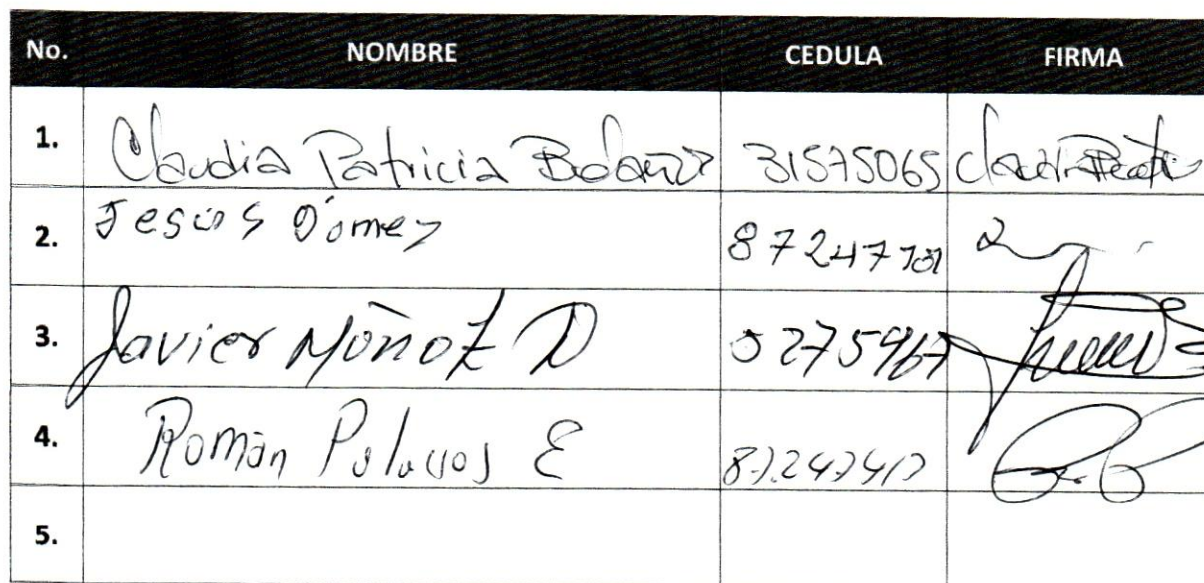 No. NOMBRE CEDULA FIRMA
1. Claudia Patricia Bolaños 31575065
2. Jesús Gómez 87247701
3. Javier Muñoz D 5275967
4. Román Palacios E 87.247417
5.